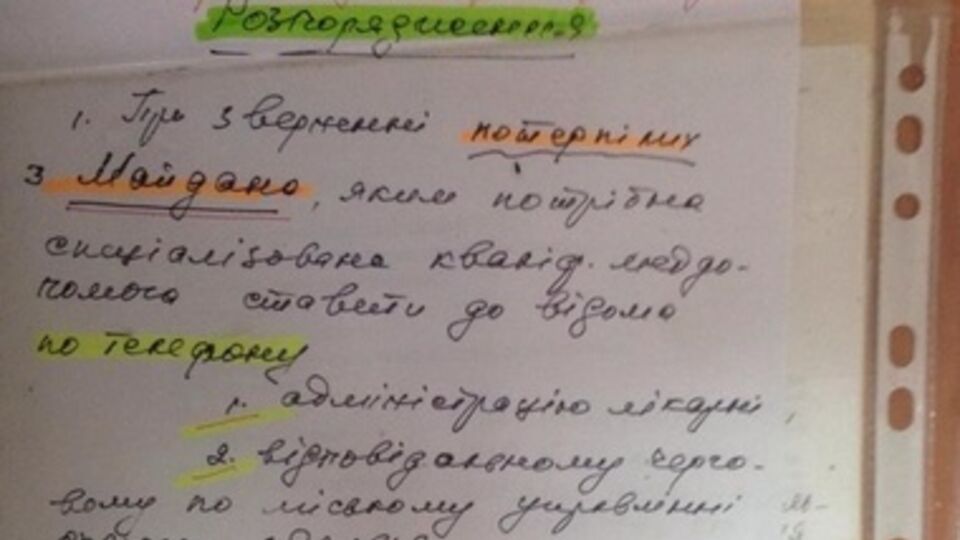 Розпорядження
1. При зверненні потерпілих
з Майдано, яким потрібна
спеціалізована кваліф. меддо-
помога ставити до відома
по телефону
1. адміністрацію лікарні,
2. відповідальному черго-
вому по міському управлінні